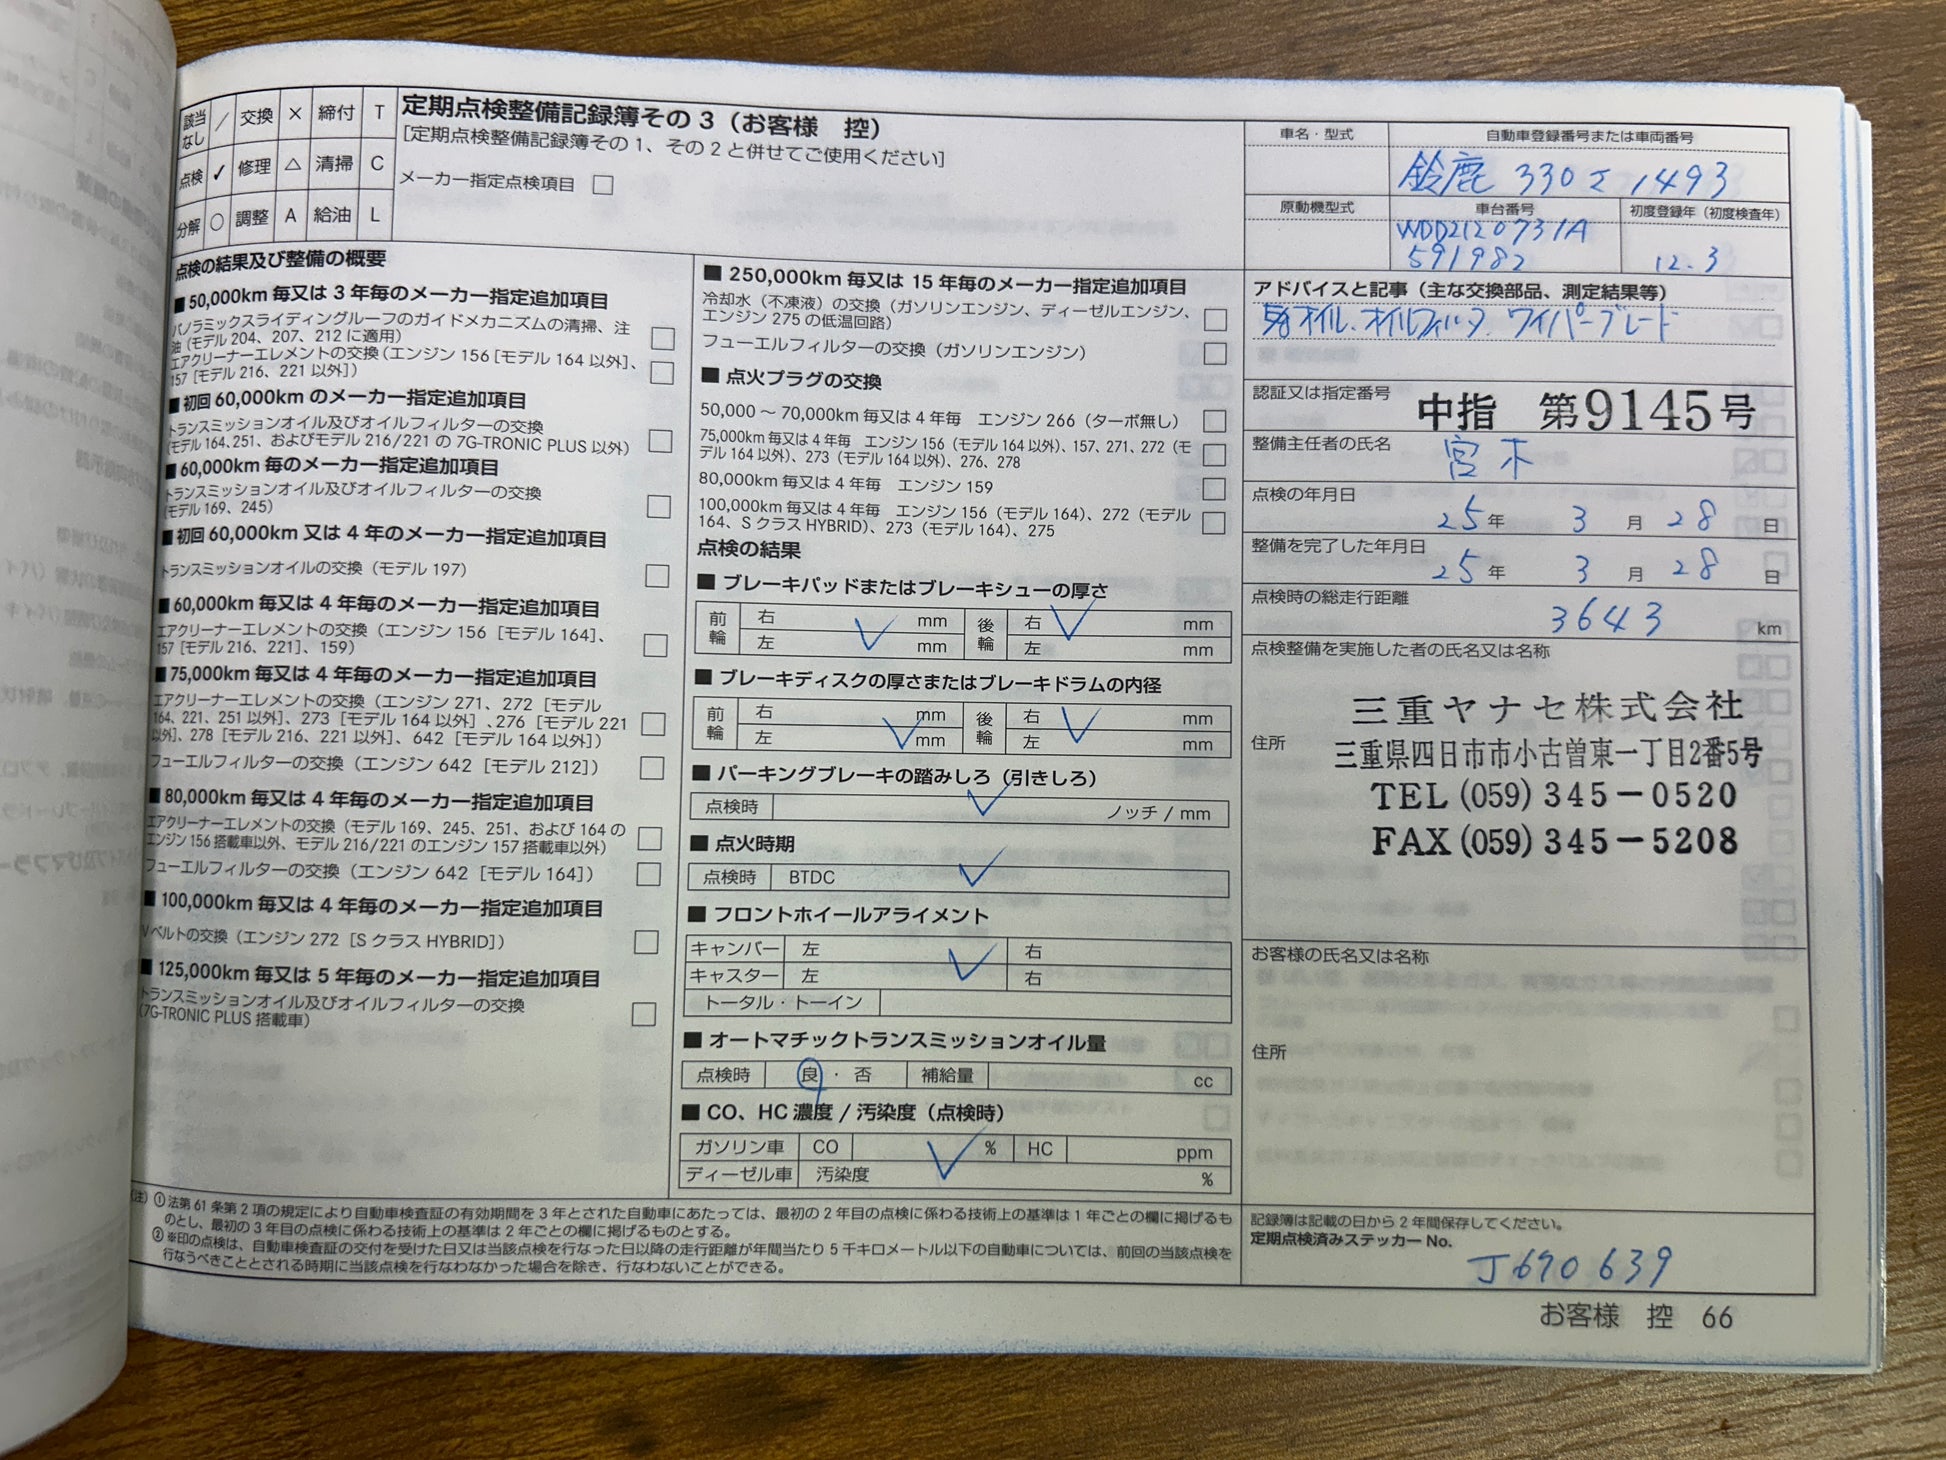 該当なし ／ 交換 × 締付 T
点検 ✓ 修理 △ 清掃 C
分解 ○ 調整 A 給油 L
定期点検整備記録簿その3（お客様　控）
［定期点検整備記録簿その1、その2と併せてご使用ください］
メーカー指定点検項目 □
点検の結果及び整備の概要
■50,000km毎又は3年毎のメーカー指定追加項目
パノラミックスライディングルーフのガイドメカニズムの清掃、注
油（モデル204、207、212に適用） □
エアクリーナーエレメントの交換（エンジン156［モデル164以外］、
157［モデル216、221以外］） □
■初回60,000kmのメーカー指定追加項目
トランスミッションオイル及びオイルフィルターの交換
（モデル164、251、およびモデル216/221の7G-TRONIC PLUS以外） □
■60,000km毎のメーカー指定追加項目
トランスミッションオイル及びオイルフィルターの交換
（モデル169、245） □
■初回60,000km又は4年毎のメーカー指定追加項目
トランスミッションオイルの交換（モデル197） □
■60,000km毎又は4年毎のメーカー指定追加項目
エアクリーナーエレメントの交換（エンジン156［モデル164］、
157［モデル216、221］、159） □
■75,000km毎又は4年毎のメーカー指定追加項目
エアクリーナーエレメントの交換（エンジン271、272［モデル
164、221、251以外］、273［モデル164以外］、276［モデル221
以外］、278［モデル216、221以外］、642［モデル164以外］） □
フューエルフィルターの交換（エンジン642［モデル212］） □
■80,000km毎又は4年毎のメーカー指定追加項目
エアクリーナーエレメントの交換（モデル169、245、251、および164の
エンジン156搭載車以外、モデル216/221のエンジン157搭載車以外） □
フューエルフィルターの交換（エンジン642［モデル164］） □
■100,000km毎又は4年毎のメーカー指定追加項目
Vベルトの交換（エンジン272［SクラスHYBRID］） □
■125,000km毎又は5年毎のメーカー指定追加項目
トランスミッションオイル及びオイルフィルターの交換
（7G-TRONIC PLUS搭載車） □
■250,000km毎又は15年毎のメーカー指定追加項目
冷却水（不凍液）の交換（ガソリンエンジン、ディーゼルエンジン、
エンジン275の低温回路） □
フューエルフィルターの交換（ガソリンエンジン） □
■点火プラグの交換
50,000～70,000km毎又は4年毎　エンジン266（ターボ無し） □
75,000km毎又は4年毎　エンジン156（モデル164以外）、157、271、272（モ
デル164以外）、273（モデル164以外）、276、278 □
80,000km毎又は4年毎　エンジン159 □
100,000km毎又は4年毎　エンジン156（モデル164）、272（モデル
164、SクラスHYBRID）、273（モデル164）、275 □
点検の結果
■ブレーキパッドまたはブレーキシューの厚さ
前輪 右 mm 後輪 右 mm
左 ✓ mm 左 ✓ mm
■ブレーキディスクの厚さまたはブレーキドラムの内径
前輪 右 mm 後輪 右 mm
左 ✓ mm 左 ✓ mm
■パーキングブレーキの踏みしろ（引きしろ）
点検時 ✓ ノッチ / mm
■点火時期
点検時 BTDC ✓
■フロントホイールアライメント
キャンバー 左 右
キャスター 左 ✓ 右
トータル・トーイン
■オートマチックトランスミッションオイル量
点検時 良・否 補給量 cc
■CO、HC濃度/汚染度（点検時）
ガソリン車 CO % HC ppm
ディーゼル車 汚染度 ✓ %
車名・型式 自動車登録番号または車両番号
鈴鹿 330 1493
原動機型式 車台番号 初度登録年（初度検査年）
WDD2120731A
591982 12.3
アドバイスと記事（主な交換部品、測定結果等）
オイル、オイルフィルタ、ワイパーブレード
認証又は指定番号 中指　第9145号
整備主任者の氏名 宮木
点検の年月日 25年 3月28日
整備を完了した年月日 25年 3月28日
点検時の総走行距離 3643 km
点検整備を実施した者の氏名又は名称
三重ヤナセ株式会社
住所 三重県四日市市小古曽東一丁目2番5号
TEL (059) 345－0520
FAX (059) 345－5208
お客様の氏名又は名称
住所
記録簿は記載の日から2年間保存してください。
定期点検済みステッカーNo.
J690639
（注）①法第61条第2項の規定により自動車検査証の有効期間を3年とされた自動車にあたっては、最初の2年目の点検に係わる技術上の基準は1年ごとの欄に掲げるも
のとし、最初の3年目の点検に係わる技術上の基準は2年ごとの欄に掲げるものとする。
②※印の点検は、自動車検査証の交付を受けた日又は当該点検を行なった日以降の走行距離が年間当たり5千キロメートル以下の自動車については、前回の当該点検を
行なうべきこととされる時期に当該点検を行なわなかった場合を除き、行なわないことができる。
お客様　控　66